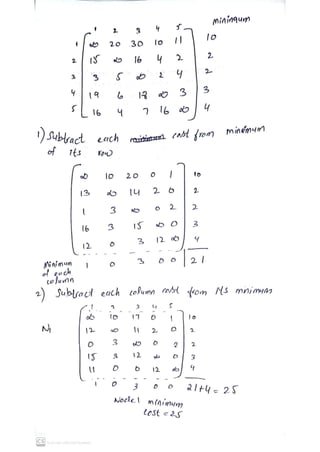 minimum
1 2 3 4 5
1 ∞ 20 30 10 11 10
2 15 ∞ 16 4 2 2
3 3 5 ∞ 2 4 2
4 19 6 18 ∞ 3 3
5 16 4 7 16 ∞ 4
1) Subtract each cost from minimum
of its row
∞ 10 20 0 1 10
13 ∞ 14 2 0 2
1 3 ∞ 0 2 2
16 3 15 ∞ 0 3
12 0 3 12 ∞ 4
Minimum 1 0 3 0 0 21
of each
column
2) Subtract each column cost from its minimum
1 2 3 4 5
∞ 10 17 0 1 10
N1 12 ∞ 11 2 0 2
0 3 ∞ 0 2 2
15 3 12 ∞ 0 3
11 0 0 12 ∞ 4
1 0 3 0 0 21+4 = 25
Node.1 minimum
cost = 25
CS